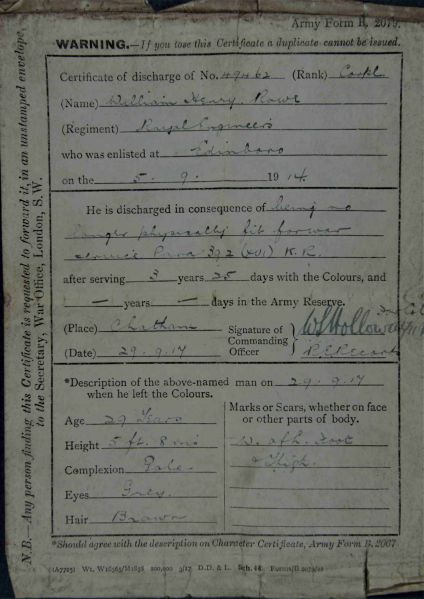 Army Form B. 2079.
WARNING.—If you lose this Certificate a duplicate cannot be issued.
Certificate of discharge of No. 49462 (Rank) Corpl
(Name) William Henry Rowe
(Regiment) Royal Engineers
who was enlisted at Edinboro
on the 5. 9. 1914.
He is discharged in consequence of being no
longer physically fit for war
service Para 392 (XVI) K.R.
after serving 3 years 25 days with the Colours, and
— years — days in the Army Reserve.
(Place) Chatham
Signature of
Commanding
Officer
(Date) 29.9.17
R.E. Records
*Description of the above-named man on 29.9.17
when he left the Colours.
Age 29 Years
Height 5 ft. 8 ins
Complexion Pale.
Eyes Grey.
Hair Brown
Marks or Scars, whether on face
or other parts of body.
foot
& Thigh.
*Should agree with the description on Character Certificate, Army Form B. 2067
D.D. & L. Sch. 44.
N.B.—Any person finding this Certificate is requested to forward it, in an unstamped envelope,
to the Secretary, War Office, London, S.W.